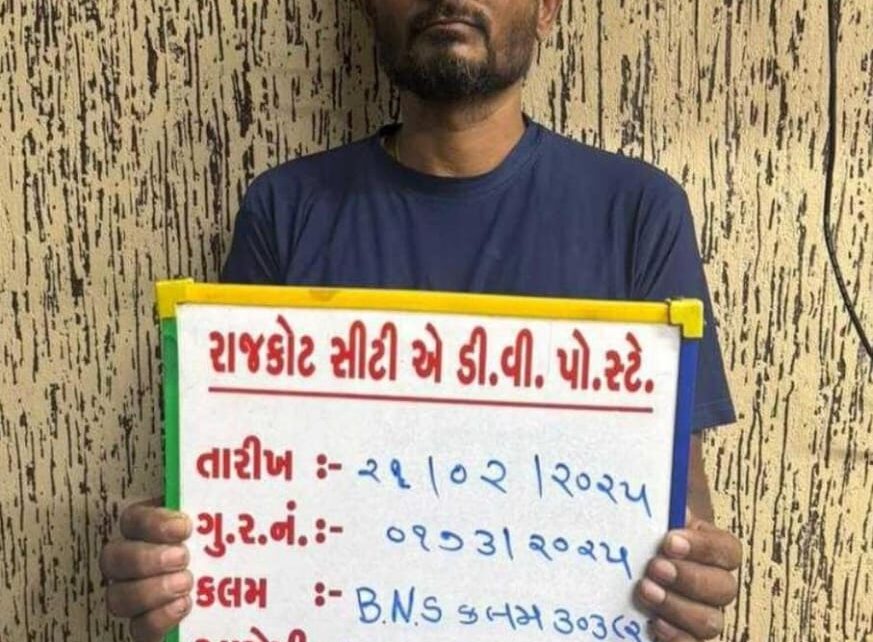 રાજકોટ સીટી એ ડી.વી. પો.સ્ટે.
તારીખ :- ૨૧/૦૨/૨૦૨૫
ગુ.ર.નં.:- ૦૧૭૩/૨૦૨૫
કલમ :- B.N.S કલમ ૩૦૩(૨